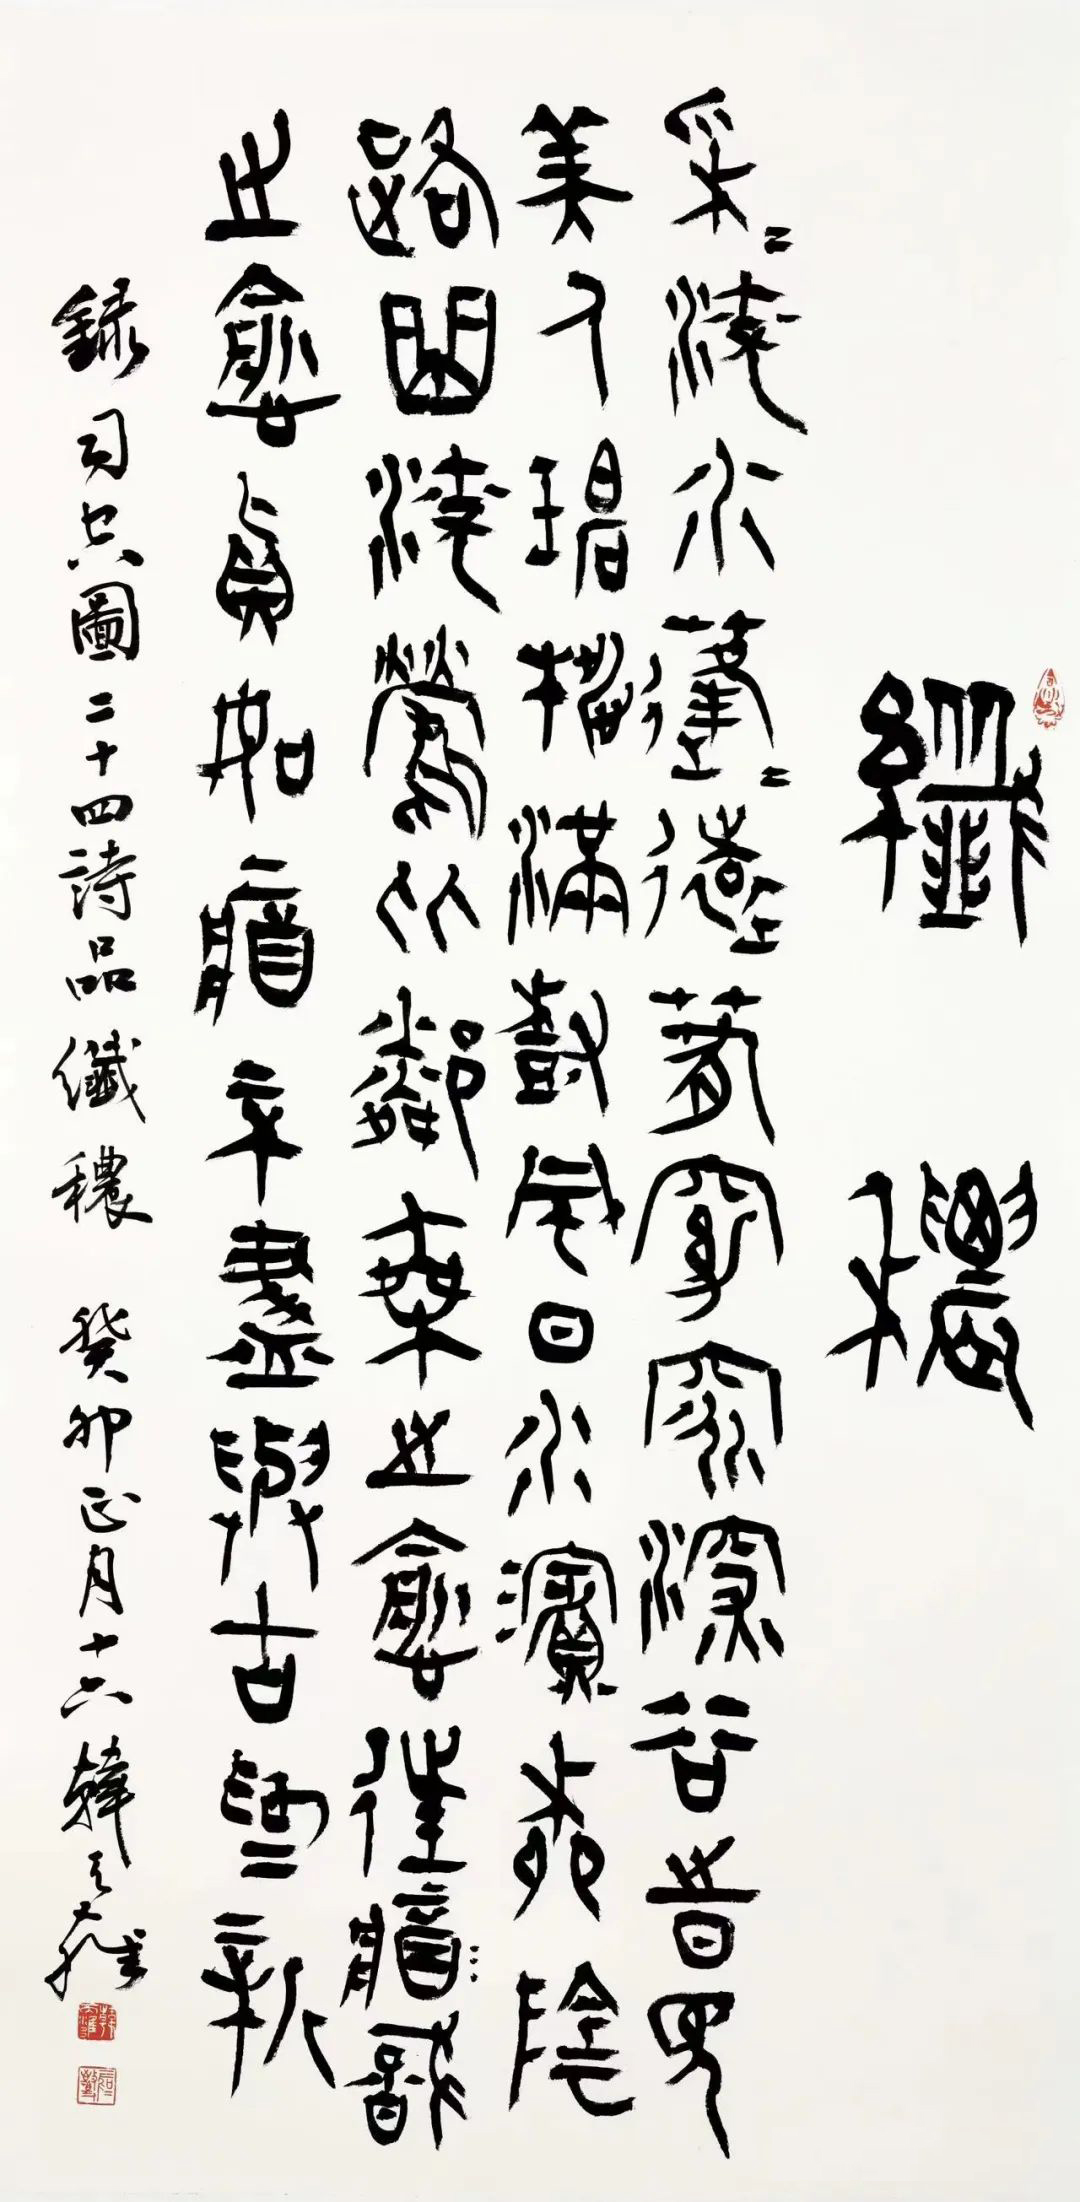 纖穠
采〻流水蓬〻遠春窈窕深谷時見
美人碧桃滿樹風日水濱柳陰
路曲流鶯比鄰乘之愈往將識
之愈真如將不盡與古為新
録司空圖二十四詩品纖穠 癸卯正月十六韓天雍
韓天雍